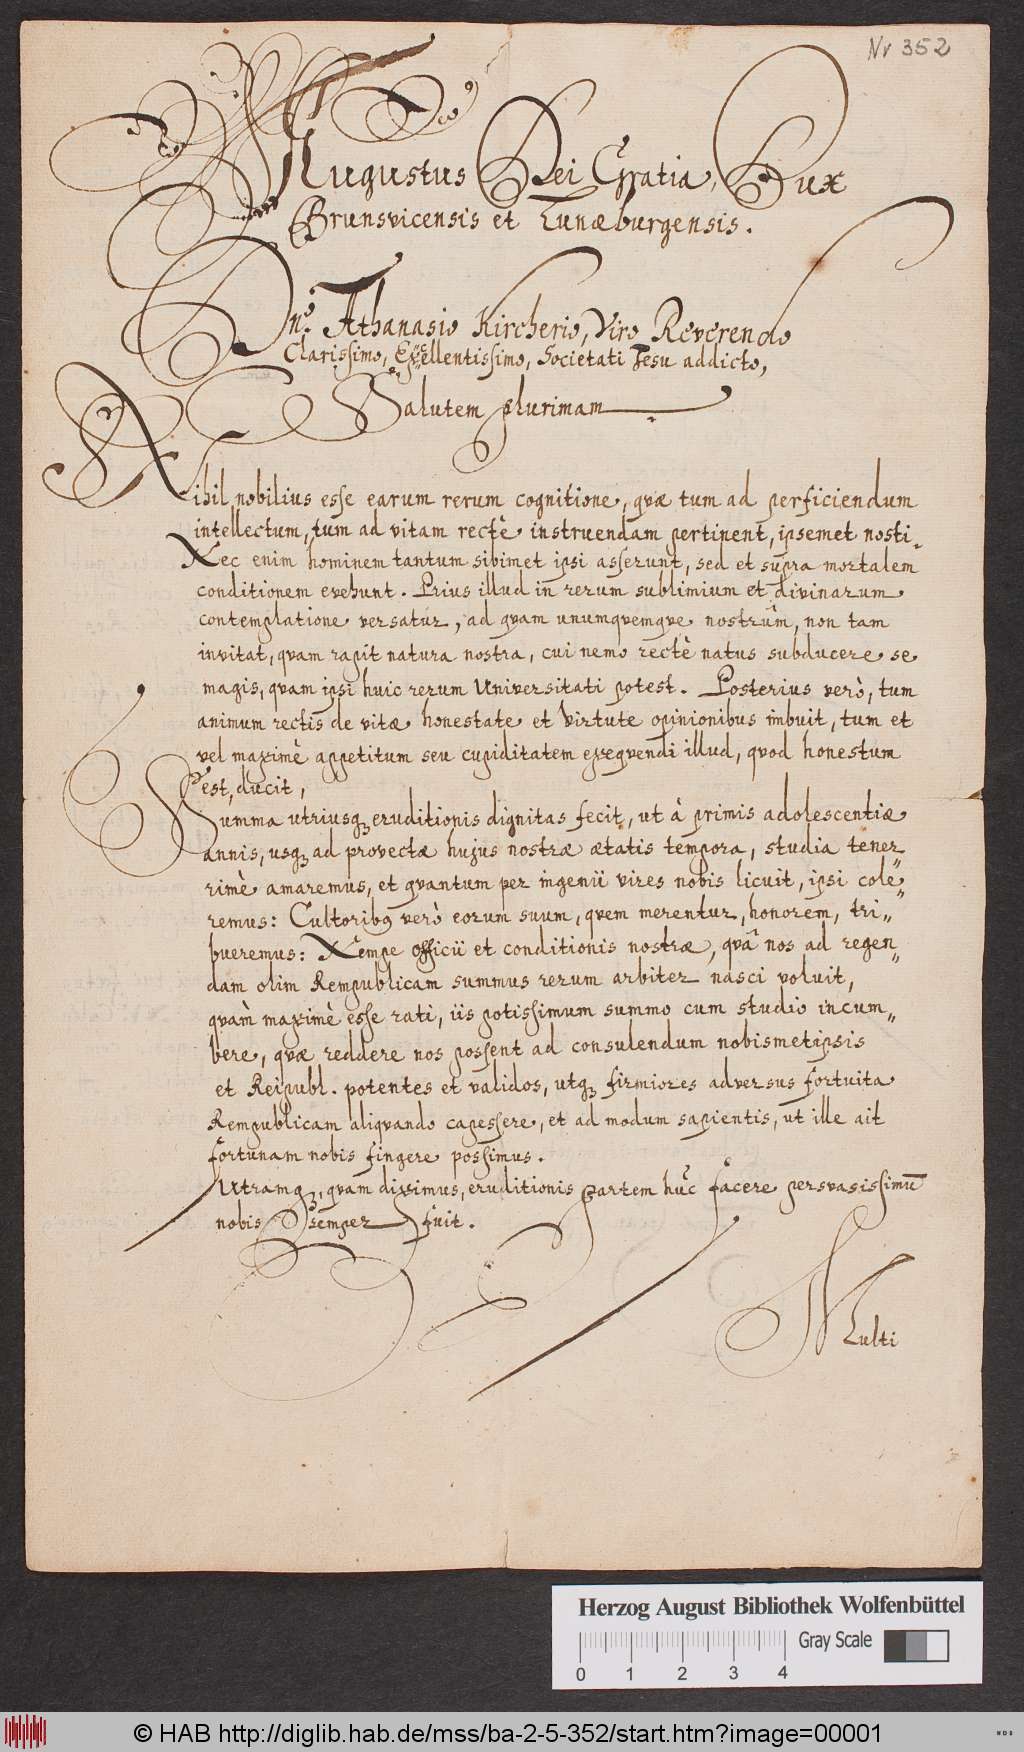 Nr 352
Augustus Dei Gratia, Dux
Brunsvicensis et Lunæburgensis.
Dno. Athanasio Kircherio, Viro Reverendo
Clarissimo, Excellentissimo, Societati Jesu addicto,
Salutem plurimam
Nihil nobilius esse earum rerum cognitione, qvæ tum ad perficiendum
intellectum, tum ad vitam rectè instruendam pertinent, ipsemet nosti.
Nec enim hominem tantum sibimet ipsi asserunt, sed et supra mortalem
conditionem evehunt. Prius illud in rerum sublimium et divinarum
contemplatione versatur, ad qvam unumqvemqve nostrûm, non tam
invitat, qvam rapit natura nostra, cui nemo rectè natus subducere se
magis, qvam ipsi huic rerum Universitati potest. Posterius verò, tum
animum rectis de vitæ honestate et virtute opinionibus imbuit, tum et
vel maximè appetitum seu cupiditatem exeqvendi illud, qvod honestum
est, ducit,
Summa utriusqꝫ eruditionis dignitas fecit, ut à primis adolescentiæ
annis, usqꝫ ad provectæ hujus nostræ ætatis tempora, studia tener
rimè amaremus, et qvantum per ingenii vires nobis licuit, ipsi cole„
remus: Cultoribꝰ verò eorum suum, qvem merentur, honorem, tri„
bueremus: Nempe officii et conditionis nostræ, qvâ nos ad regen„
dam olim Rempublicam summus rerum arbiter nasci voluit,
qvàm maximè esse rati, iis potissimum summo cum studio incum„
bere, qvæ reddere nos possent ad consulendum nobismetipsis
et Reipubl. potentes et validos, utqꝫ firmiores adversus fortuita
Rempublicam aliqvando capessere, et ad modum sapientis, ut ille ait
fortunam nobis fingere possimus.
Utramqꝫ, qvam diximus, eruditionis partem hûc facere persvasissimū
nobis semper fuit.
Multi
Herzog August Bibliothek Wolfenbüttel
Gray Scale
0 1 2 3 4
© HAB http://diglib.hab.de/mss/ba-2-5-352/start.htm?image=00001